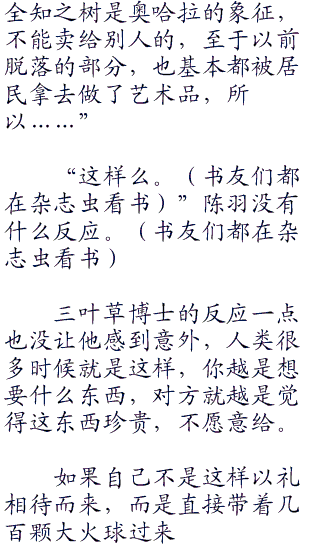 全知之树是奥哈拉的象征，
不能卖给别人的，至于以前
脱落的部分，也基本都被居
民拿去做了艺术品，所
以……”
“这样么。（书友们都
在杂志虫看书）”陈羽没有
什么反应。（书友们都在杂
志虫看书）
三叶草博士的反应一点
也没让他感到意外，人类很
多时候就是这样，你越是想
要什么东西，对方就越是觉
得这东西珍贵，不愿意给。
如果自己不是这样以礼
相待而来，而是直接带着几
百颗大火球过来